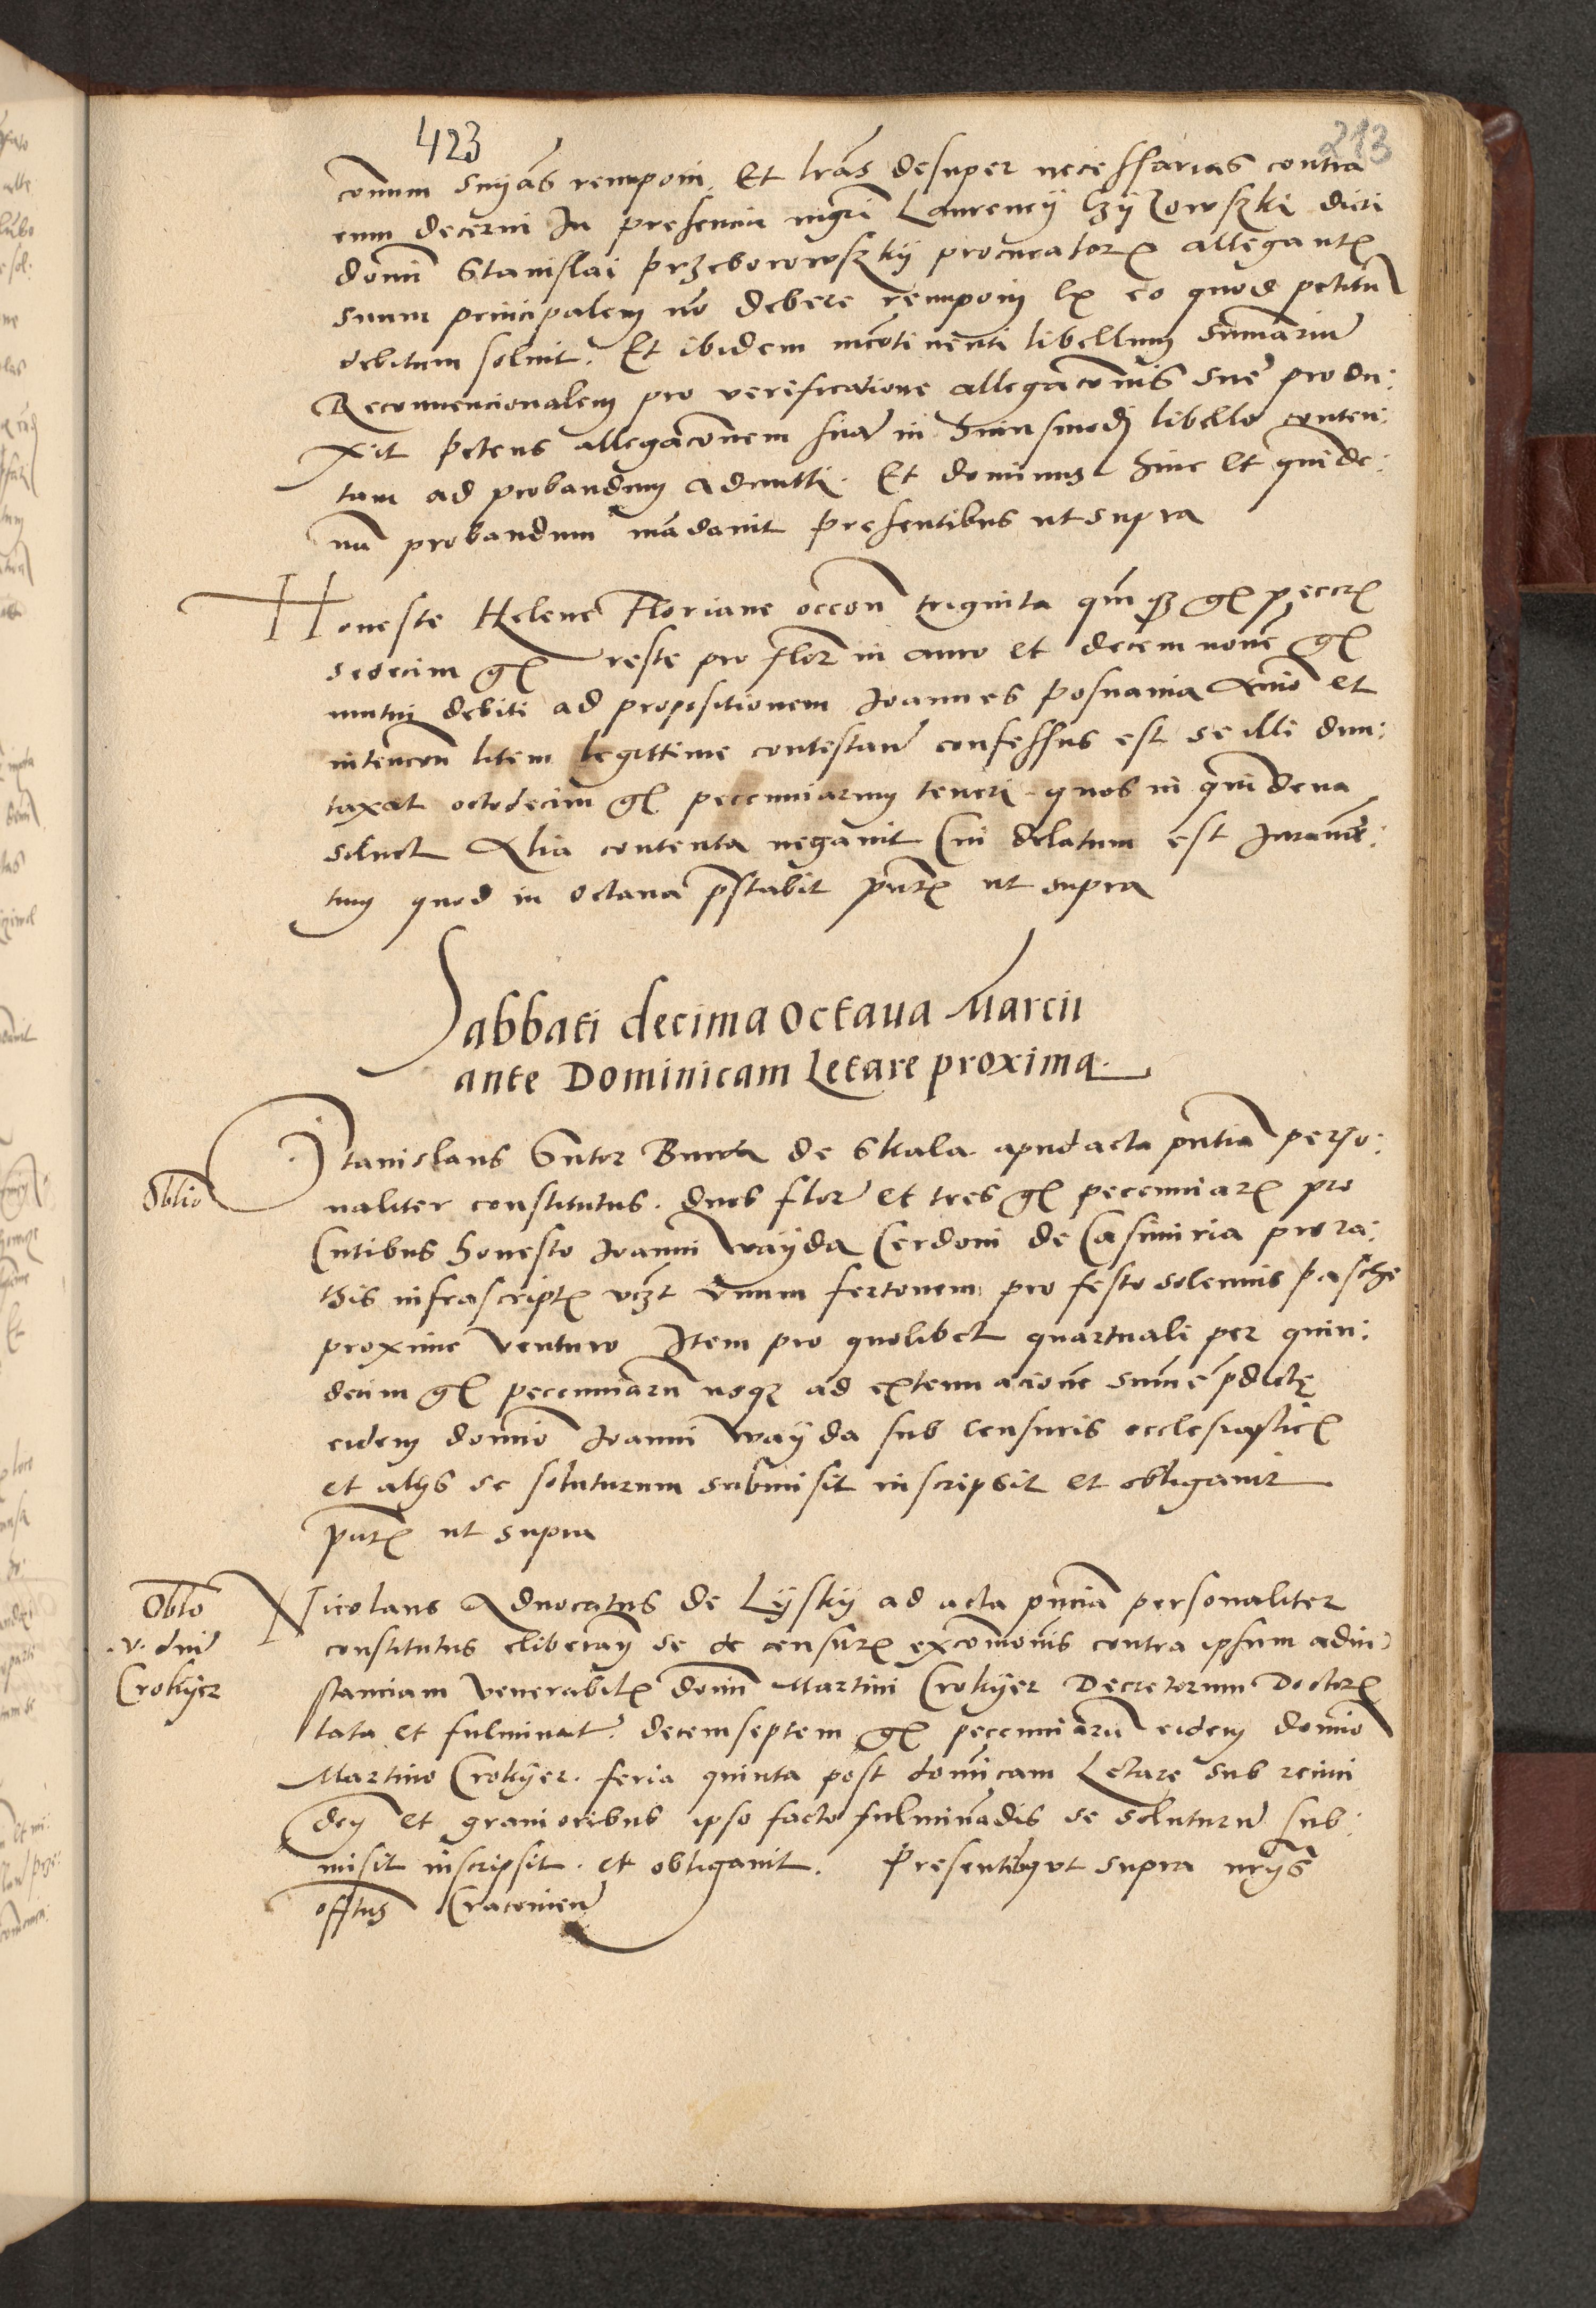 423
213
comum snyãs remponi. Et lrãs desuper necessarias contra
eum decerni In presencia mgri Laurencij Czijzowskki dicti
domi Stanislai przeborowskij procuratorꝭ allegantꝭ
suum principalem nõ debere remponi Ex eo quod petitũ
debitum soluit. Et ibidem incõtinenti libellum sũmariũ
Reconuencionalem pro verificatione allegacõnis sue produ:
xit petens allegacõnem suã in huiusmodj libello conten:
tam ad probandum admitti. Et dominus hinc et quinde:
nã probandum mãdauit presentibus ut supra
Honeste Helene Floriane occõn triginta
sedecim gꝭ reste pro flor in auro et decem nouẽ gꝭ
mutui debiti ad propositionem Joannes posnania Aĩo et
intencõn litem legittime contestanᷓ confessus est se illi dun:
taxat octodecim gꝭ pecuniarum teneri quos in quindena
soluet Alia contenta negauit Cui delatum est Juramẽ:
tum quod in octaua p̃stabit pñtꝭ ut supra
Sabbati decima Octaua Marcii
ante Dominicam Letare proxima
Oblio
Stanislaus Sutor Burda de Skala apud acta pñtia perso:
naliter constitutus. duos florᷓ et tres gꝭ pecuniarꝭ pro
Cutibus honesto Joanni wayda Cerdoni de Casimiria pro ra:
this infrascriptꝭ vczt vnum fertonem pro festo solennis pasche
proxime venturo Item pro quolibet quartuali per quin:
decim gꝭ pecuniarũ usqꝫ ad extenuacionẽ sũme p̃dictę
eidem domĩo Joanni wayda sub censuris ecclesiasticꝭ
et alijs se soluturum submisit inscripsit et obligauit
pñtꝭ ut supra
Oblo
.v. dni
Crokÿer
Nicolaus Aduocatus de Lÿskÿ ad acta pñciã personaliter
constitutus eliberanᷓ se de censurꝭ excõmonis contra ipsum ad in
stanciam venerabilꝭ domĩ Martini Crokÿer Decretorum Doctorꝭ
lata et fulminatᷓ. decemseptem gꝭ pecuniarũ eidem domĩo
Martino Crokÿer. feria quinta post domĩcam Letare sub reinci
den et grauioribus ipso facto fulminãdis se soluturũ sub:
misit inscripsit. et obligauit. Presentibꝫ vt supra nr̃ijs
offtus Cracouienᷓ